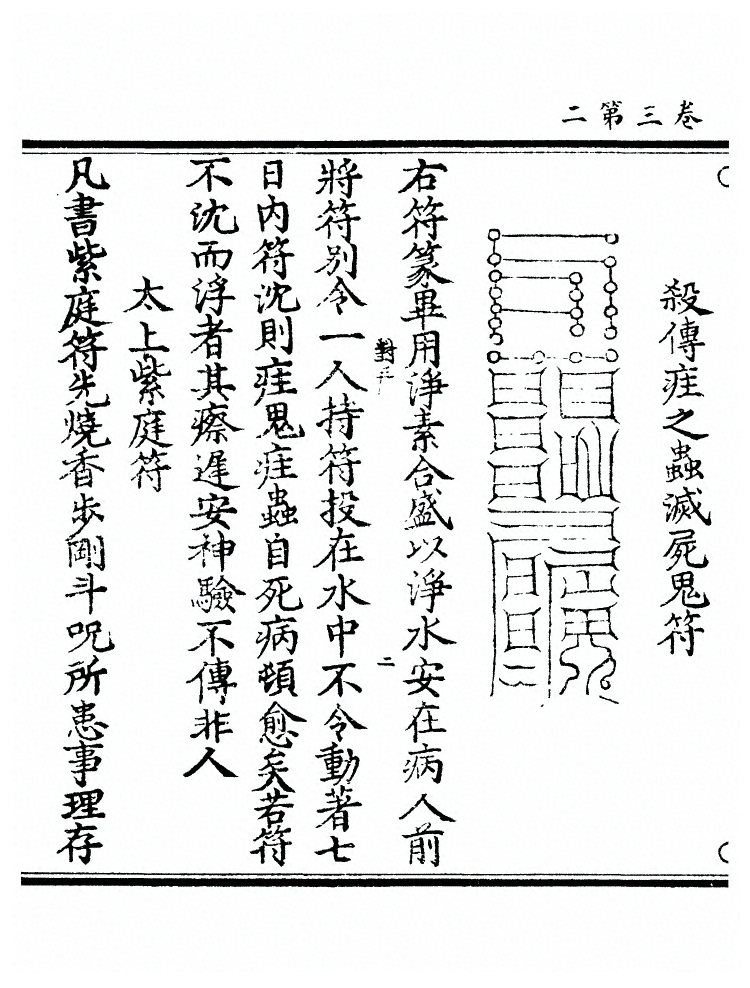 卷三第二
殺傳疰之蟲滅屍鬼符
右符篆畢用淨素合盛以淨水安在病人前
將符別令一人持符投在水中不令動著七
對三
二
日內符沈則疰鬼疰蟲自死病頓愈矣若符
不沈而浮者其瘵遲安神驗不傳非人
太上紫庭符
凡書紫庭符先燒香步剛斗呪所患事理存